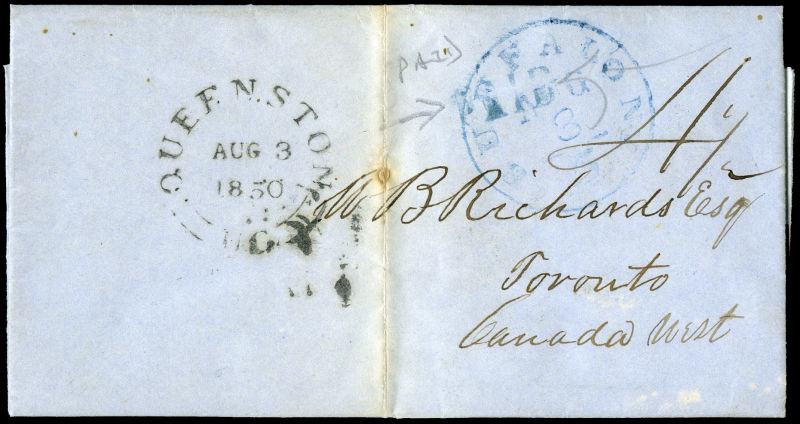 QUEENSTON
AUG 3
1850
U.C.
PAID
BUFFALO N.Y.
PAID
5
W B Richards Esq
Toronto
Canada West